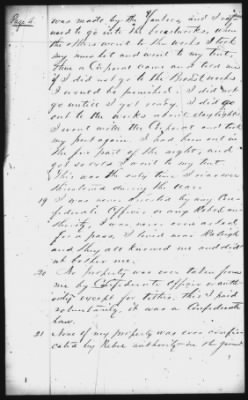 Page 4
was made by the Yankees and I refused
to go into the breastworks, when
the others went to the works I took
my musket and went to my tent.
Then a Corporal came and told me
if I did not go to the Breastworks
I would be punished. I did not
go until I got ready. I did go
out to the works about daylight
I went with the Corporal and took
my post again. I had been out in
the fore part of the night, and
got so cold I went to my tent.
This was the only time I was ever
threatened during the war.
19 I was never arrested by any Con-
federate Officer or any Rebel au-
thority. I was never even asked
for a pass. I lived near Raleigh
and they all knowed me and did
not bother me.
20 No property was ever taken from
me by Confederate Officers or auth-
ority except for tithes. this I paid
voluntarily, it was a Confederate
Law.
21 None of my property was ever confis-
cated by Rebel authority on the ground